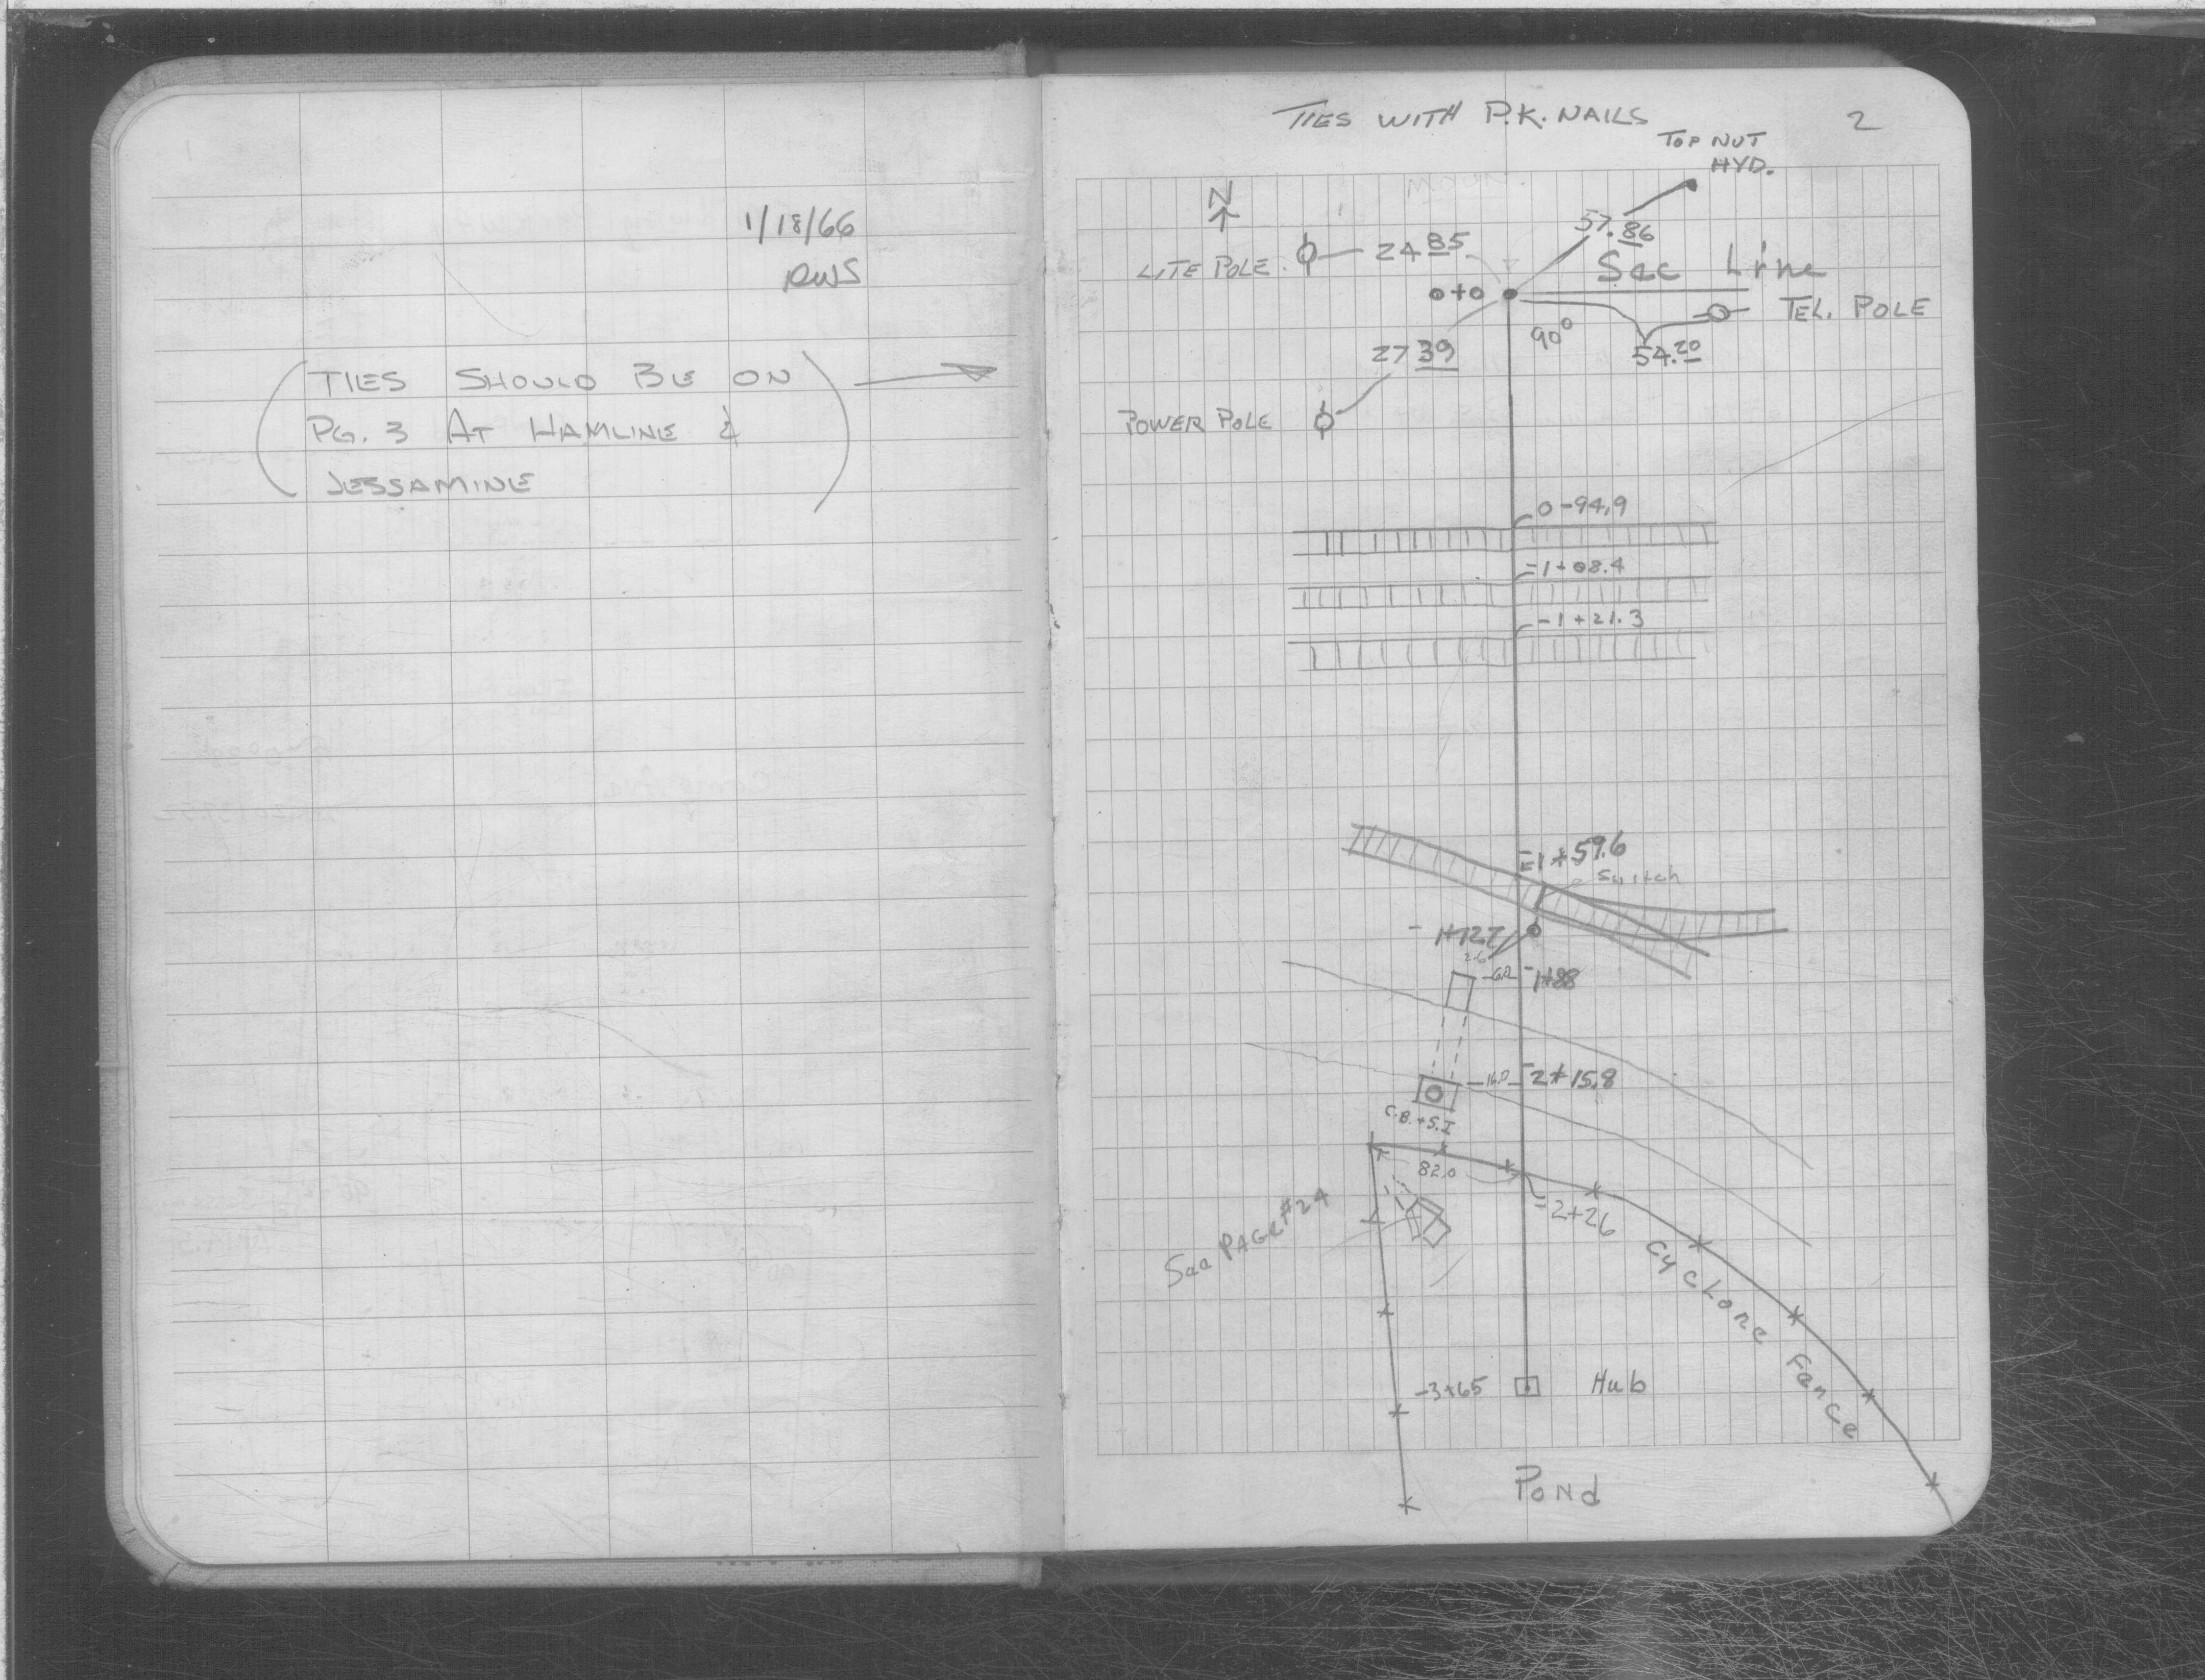 1/18/66
RWS
(TIES SHOULD BE ON
PG. 3 AT HAMLINE &
JESSAMINE)
TIES WITH P.K. NAILS
2
TOP NUT
HYD.
N
57.86
LITE POLE
24 85
Sec Line
0+0
TEL. POLE
90°
27 39
54.20
POWER POLE
0-94.9
-1+08.4
-1+21.3
-1+59.6
Switch
2.6
-1+88
16.0
-2+15.8
C.B.+S.I
82.0
See PAGE #24
-2+26
Cyclone Fence
-3+65
Hub
Pond